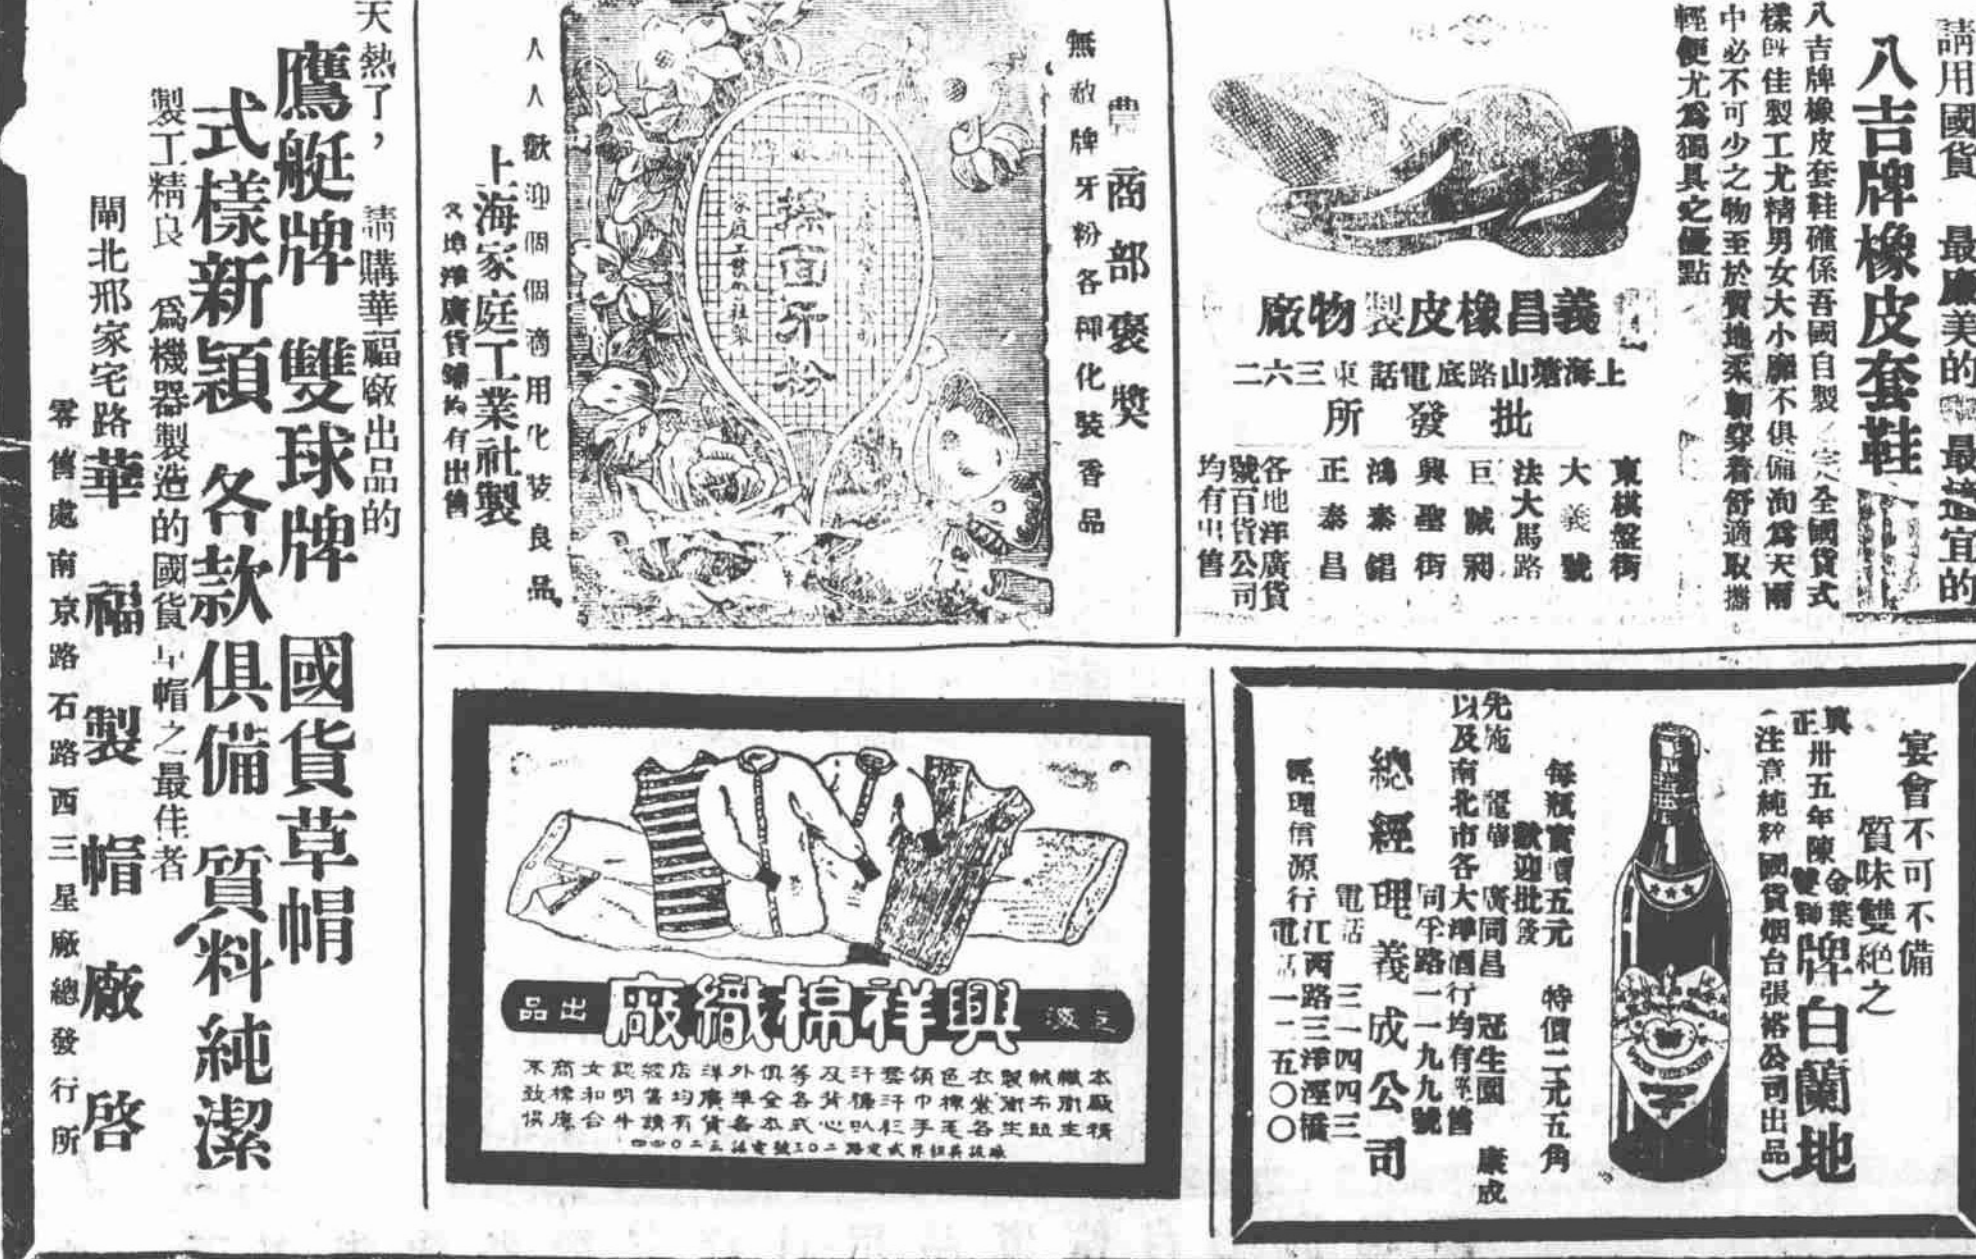 請用國貨 最廉美的 最適宜的
八吉牌橡皮套鞋
八吉牌橡皮套鞋確係吾國自製 完全國貨式
樣 佳製工尤精男女大小靡不俱備洵爲天雨
中必不可少之物至於質地柔韌穿着舒適取攜
輕便尤爲獨具之優點
義昌橡皮製物廠
上海塘山路底電話東三六二
批發所
東棋盤街
大義號
法大馬路
巨誠利
興聖街
鴻泰錩
正泰昌
各地洋廣貨
號百貨公司
均有出售
農商部褒獎
無敵牌牙粉各種化裝香品
擦面牙粉
家庭工業社製
人人歡迎個個適用化裝良品
上海家庭工業社製
外埠洋廣貨鋪均有出售
天熱了，請購華福廠出品的
鷹艇牌 雙球牌 國貨草帽
式樣新穎 各款俱備 質料純潔
製工精良 爲機器製造的國貨草帽之最佳者
閘北邢家宅路華福製帽廠啓
零售處南京路石路西三星廠總發行所
宴會不可不備
質味雙絕之
真正卅五年陳金葉雙獅牌白蘭地
(注意純粹國貨烟台張裕公司出品)
每瓶實價五元 特價二元五角
歡迎批發
先施 龍華 廣同昌 冠生園 康成
以及南北市各大洋酒行均有經售
總經理義成公司
同孚路一一九九號
電話 三一四四三
經理信源行
江西路三洋涇橋
電話一一五〇〇
上海 興祥棉織廠 出品
本廠精
織衛生
絨布並
製衛生
衣裳各
色棉毛
領巾手
套汗衫
汗褲叭
及背心
等各式
俱全本
外準各
洋廣貨
店均有
經售請
認明牛
女和合
商標庶
不致悞